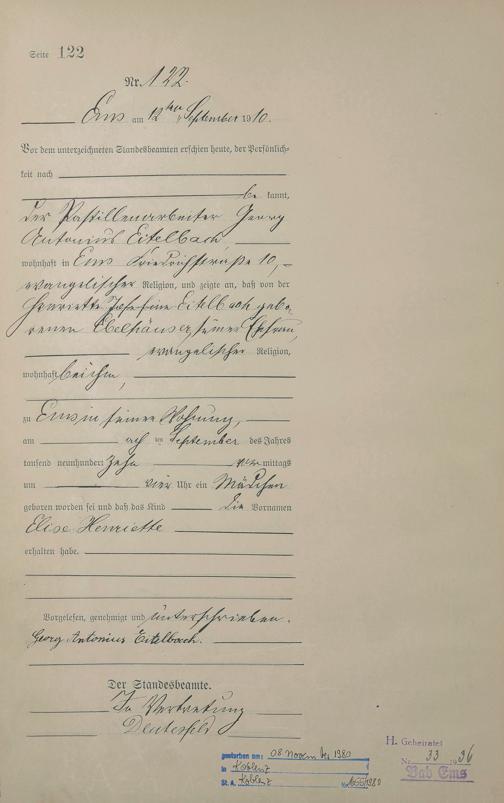 Seite 122
Nr. 122.
Ems am 12ten September 1910.
Vor dem unterzeichneten Standesbeamten erschien heute, der Persönlich-
keit nach
be kannt,
der Pastillenarbeiter Georg
Antonius Eitelbach,
wohnhaft in Ems Friedrichstraße 10,
evangelischer Religion, und zeigte an, daß von der
Henriette Josefine Eitelbach gebo-
renen Ebelhäuser, seiner Ehefrau,
evangelischer Religion,
wohnhaft bei ihm,
zu Ems in seiner Wohnung,
am acht ten September des Jahres
tausend neunhundert zehn vor mittags
um vier Uhr ein Mädchen
geboren worden sei und daß das Kind die Vornamen
Elise Henriette
erhalten habe.
Vorgelesen, genehmigt und unterschrieben.
Georg Antonius Eitelbach.
Der Standesbeamte.
In Vertretung
gestorben am: 08. November 1980
in Koblenz
St. A. Koblenz Nr. /1980
H. Geheiratet
Nr. 33 1936
Bad Ems